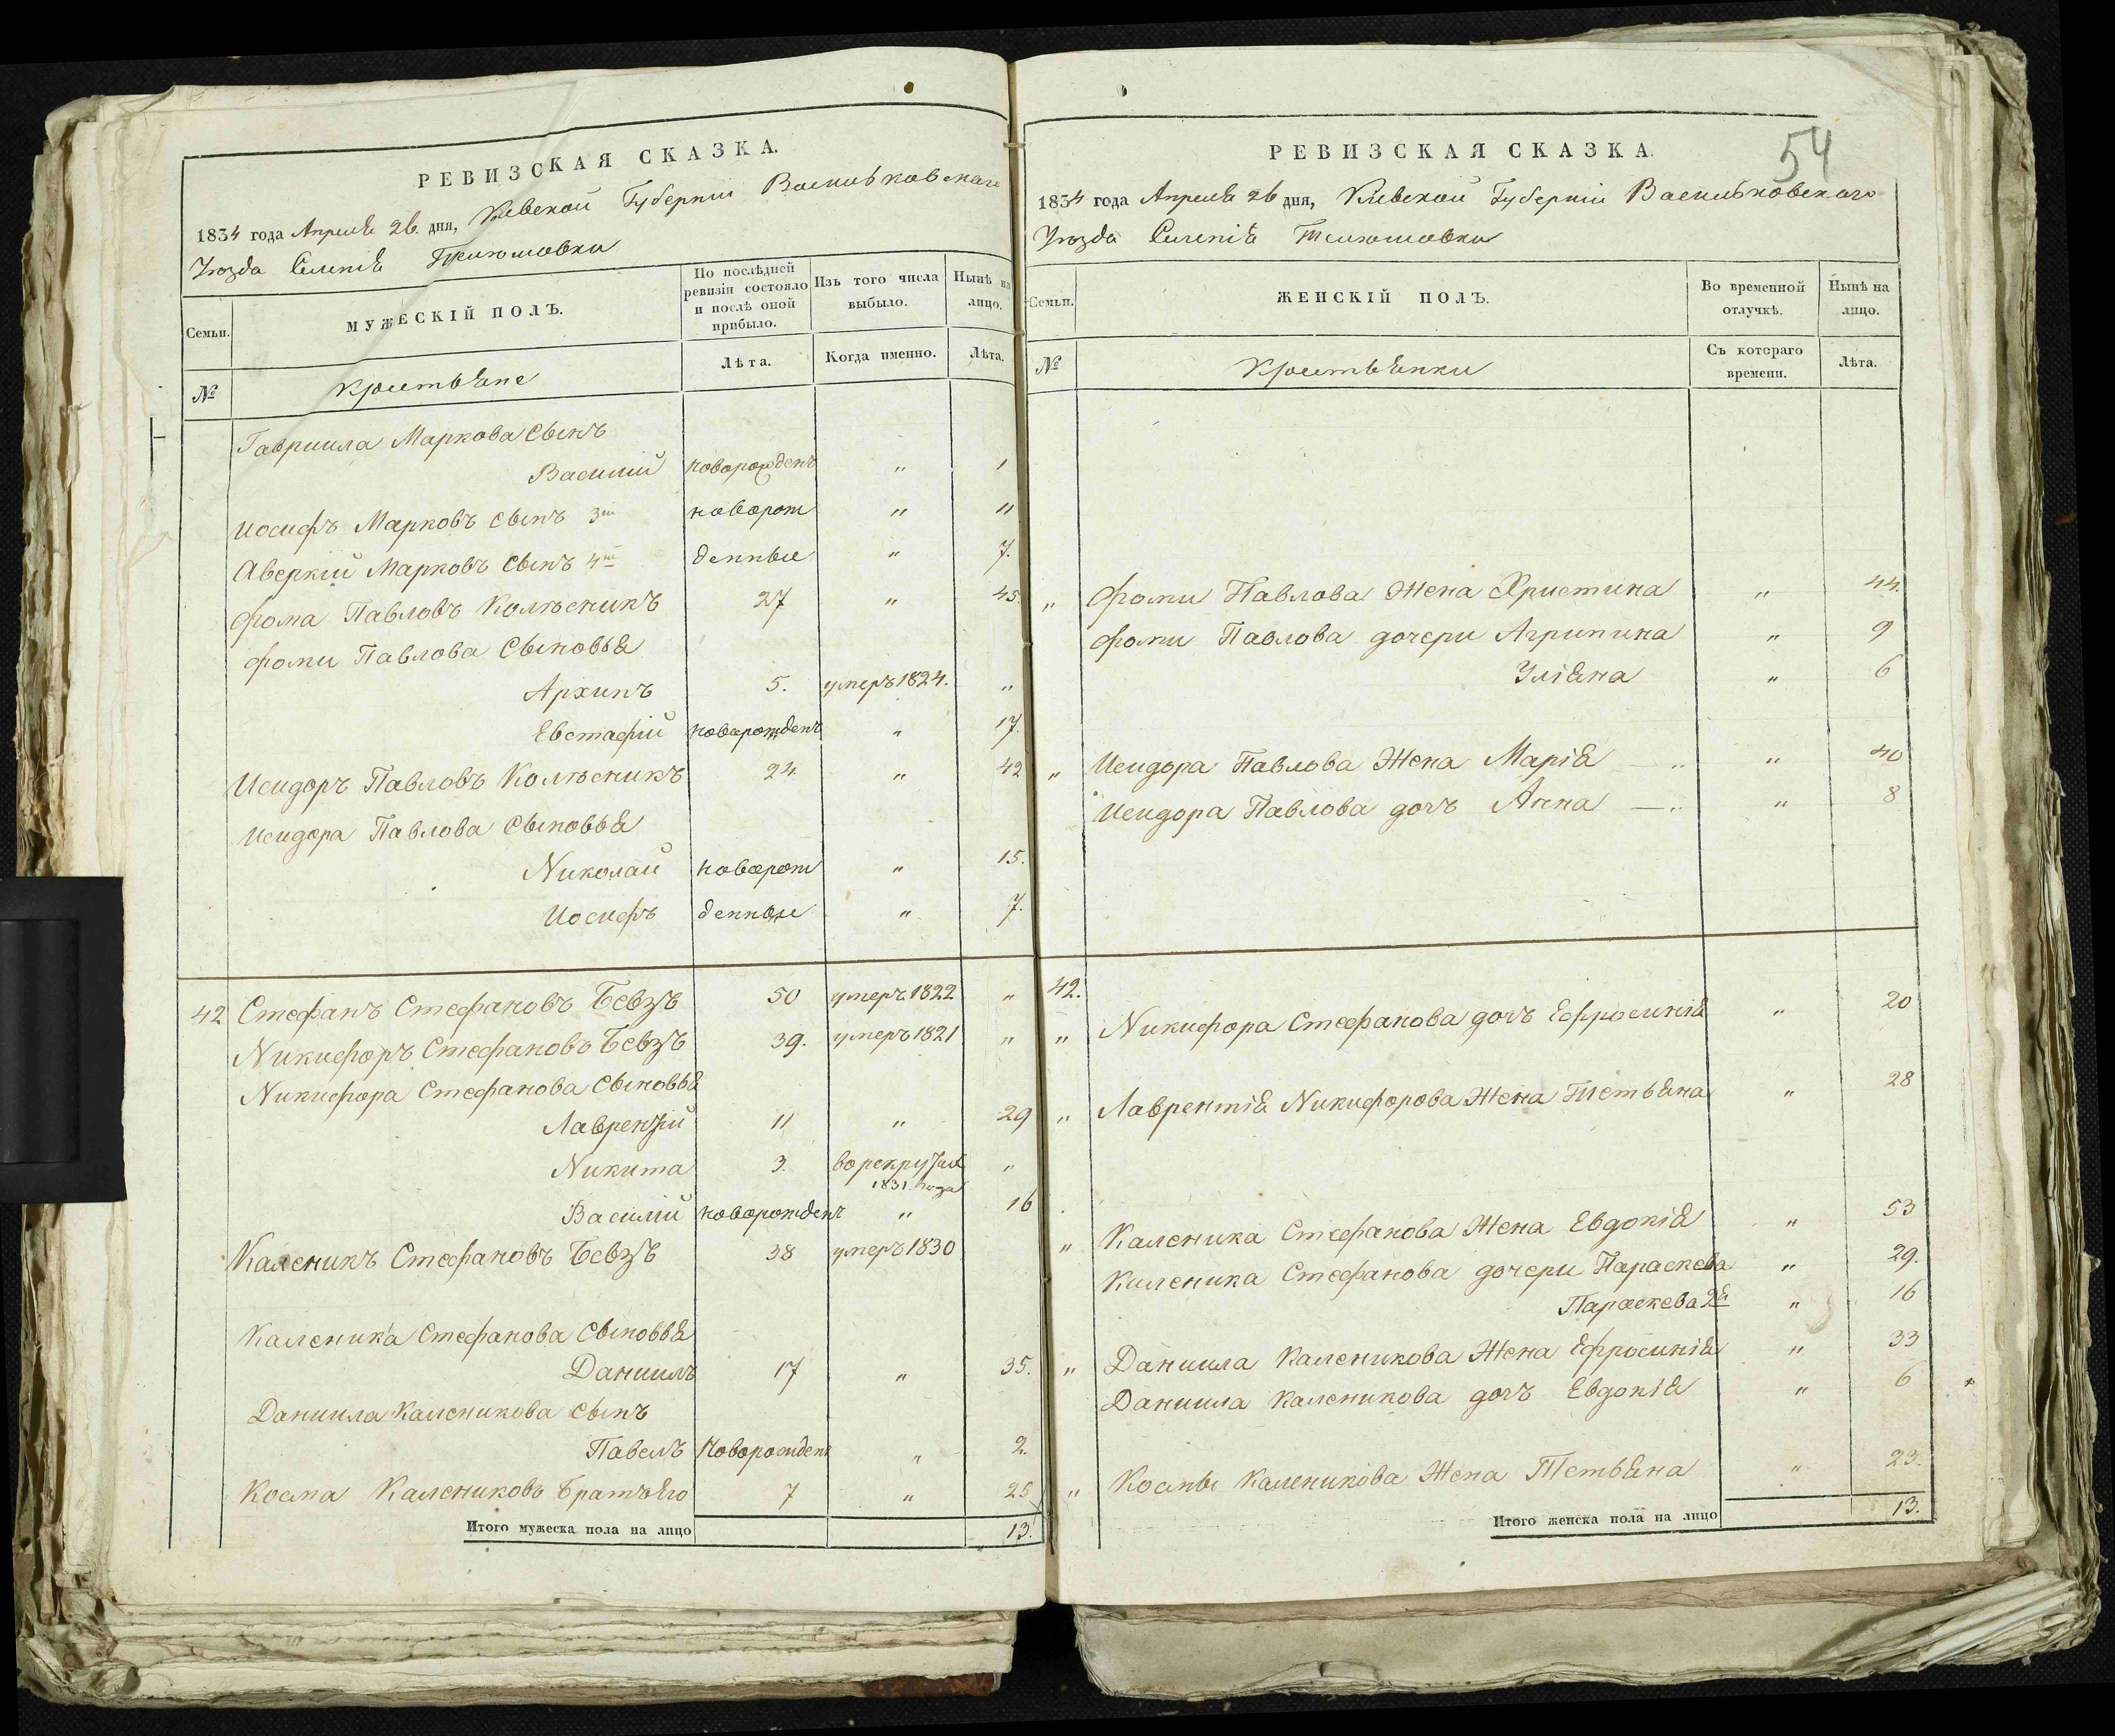 РЕВИЗСКАЯ СКАЗКА.
1834 года Апреля 26. дня, Киевской Губернии Васильковскаго
Уѣзда Селенія
Семьи.
МУЖЕСКІЙ ПОЛЪ.
По послѣдней ревизіи состояло и послѣ оной прибыло.
Изъ того числа выбыло.
Нынѣ на лицо.
№
крестьяне
Лѣта.
Когда именно.
Лѣта.
Гавриила Маркова Сынъ
Василий новорожденъ " 1
Иосифъ Марковъ сынъ 3й новорож " 11
Аверкий Марковъ Сынъ 4й денные " 7.
Фома Павловъ Колѣсникъ 27 " 45
Фомы Павлова Сыновья
Архипъ 5. умеръ 1824. "
Евстафий новорожденъ " 17.
Исидоръ Павловъ Колѣсникъ 24 " 42
Исидора Павлова Сыновья
Николай новорож " 15.
Иосифъ денные " 7.
42 Стефанъ Стефановъ Бевзъ 50 умеръ 1822 "
Никифоръ Стефановъ Бевзъ 39. умеръ 1821 "
Никифора Стефанова Сыновья
Лаврентий 11 " 29
Никита 3. в рекруты "
1831. года
Василий новорожденъ " 16
Каленикъ Стефановъ Бевзъ 38 умеръ 1830
Каленика Стефанова Сыновья
Даниилъ 17 " 35.
Даниила Каленикова Сынъ
Павелъ Новорожденъ " 2.
Косма Калениковъ Братъ Его 7 " 25
Итого мужеска пола на лицо 13.
54
РЕВИЗСКАЯ СКАЗКА.
1834 года Апреля 26 дня, Киевской Губернии Васильковскаго
Уѣзда Селенія
Семьи.
ЖЕНСКІЙ ПОЛЪ.
Во временной отлучкѣ.
Нынѣ на лицо.
№
Крестьянки
Съ котораго времени.
Лѣта.
" Фомы Павлова Жена Христина " 44.
Фомы Павлова дочери Агрипина " 9
Уліяна " 6
" Исидора Павлова Жена Марія " 40
Исидора Павлова дочь Анна " 8
42.
" Никифора Стефанова дочь Ефросинія " 20
" Лаврентія Никифорова Жена Тетьяна " 28
" Каленика Стефанова Жена Евдокія " 53
Каленика Стефанова дочери Параскева " 29.
Параскева 2я " 16
" Даниила Каленикова Жена Ефросинія " 33
Даниила Каленикова дочь Евдокія " 6
" Космы Каленикова Жена Тетьяна " 23.
Итого женска пола на лицо 13.